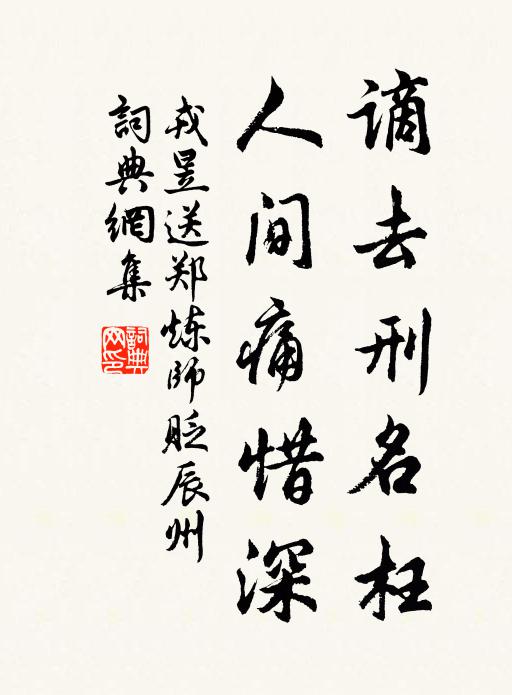 谪去刑名枉
人间痛惜深
戎昱送郑炼师贬辰州
詞典網集
詞典网印